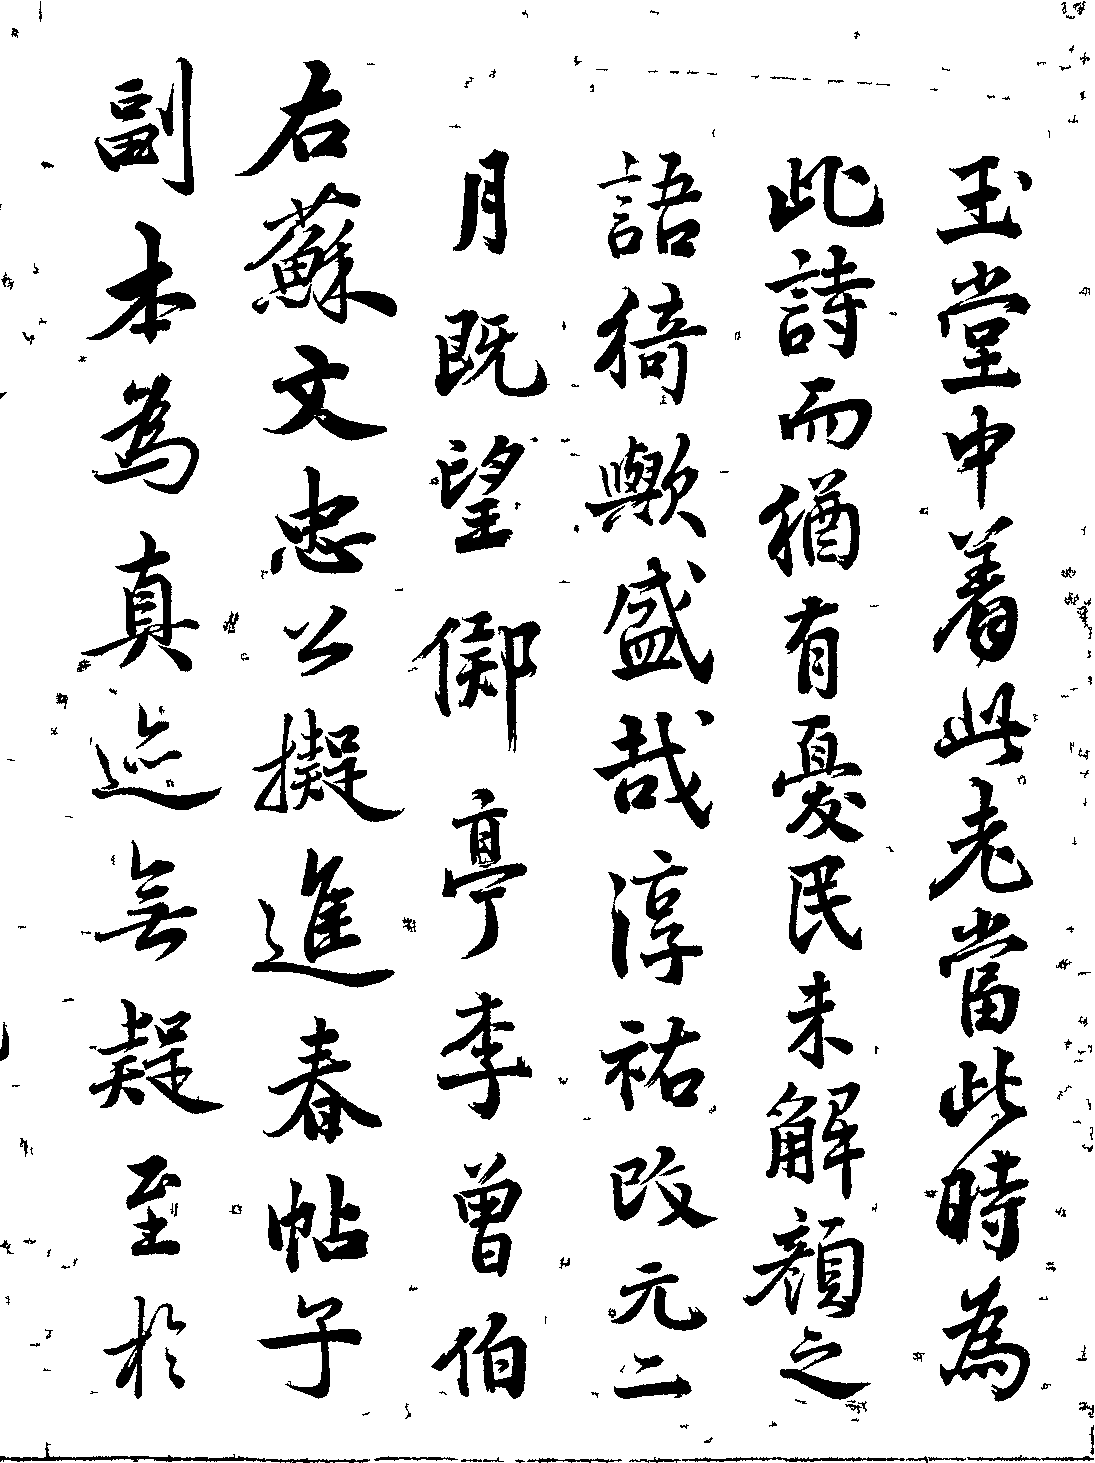 玉堂中着此老當此時為
此詩而猶有憂民未解顏之
語猗歟盛哉淳祐改元二
月既望㑂亭李曾伯
右蘇文忠公擬進春帖子
副本為真迹無疑至於